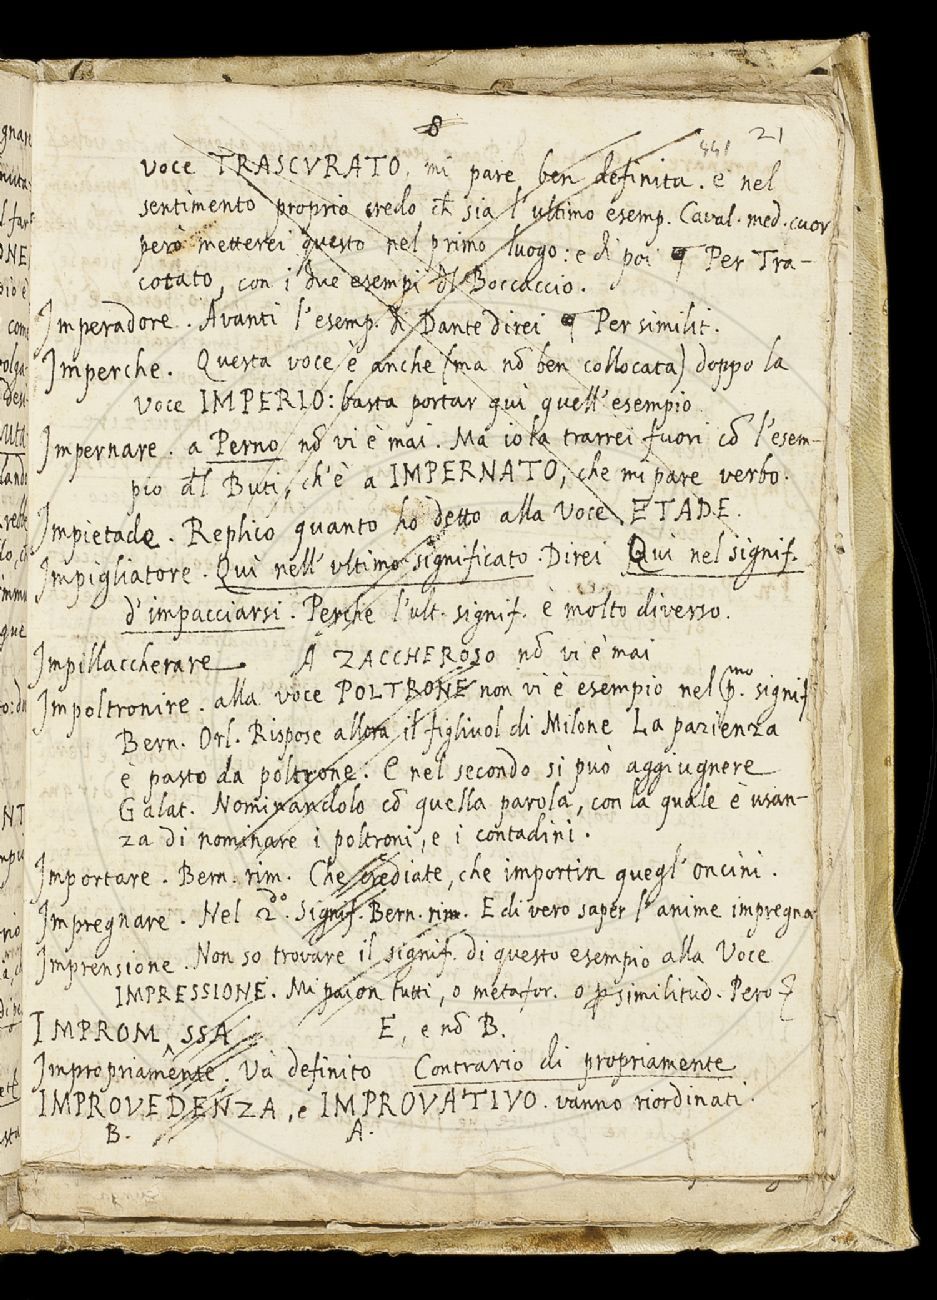 8 21
551
voce TRASCVRATO, mi pare ben definita. e nel
sentimento proprio credo ch̃ sia l'ultimo esemp. Caval. med. cuor
però metterei questo nel primo luogo: e di poi ¶ Per Tra-
cotato, con i due esempi dl Boccaccio.
Imperadore. Avanti l'esemp. di Dante direi ¶ Per similit.
Imperche. Questa voce è anche (ma nõ ben collocata) doppo la
voce IMPERIO: basta portar quì quell'esempio
Impernare. a Perno nõ vi è mai. Ma io la trarrei fuori cõ l'esem-
pio dl Buti, ch'è a IMPERNATO, che mi pare verbo.
Impietade. Replico quanto ho detto alla Voce ETADE.
Impigliatore. Quì nell'ultimo significato. Direi Quì nel signif.
d'impacciarsi. Perche l'ult. signif. è molto diverso.
Impillaccherare A ZACCHEROSO nõ vi è mai
Impoltronire. alla voce POLTRONE non vi è esempio nel p.mo signif.
Bern. Orl. Rispose allora il figliuol di Milone La pazienza
è pasto da poltrone. E nel secondo si può aggiugnere
Galat. Nominandolo cõ quella parola, con la quale è usan-
za di nominare i poltroni, e i contadini.
Importare. Bern. rim. Che crediate, che importin quegl'oncini.
Impregnare. Nel 2do. Signif. Bern. rim. E di vero saper l'anime impregna
Imprensione. Non so trovare il signif. di questo esempio alla Voce
IMPRESSIONE. Mi paion tutti, o metafor. o p similitud. Pero
IMPROM‸SSA E, e nõ B.
Impropriamente. Và definito Contrario di propriamente
IMPROVEDENZA, e IMPROVATIVO. vanno riordinati.
B. A.